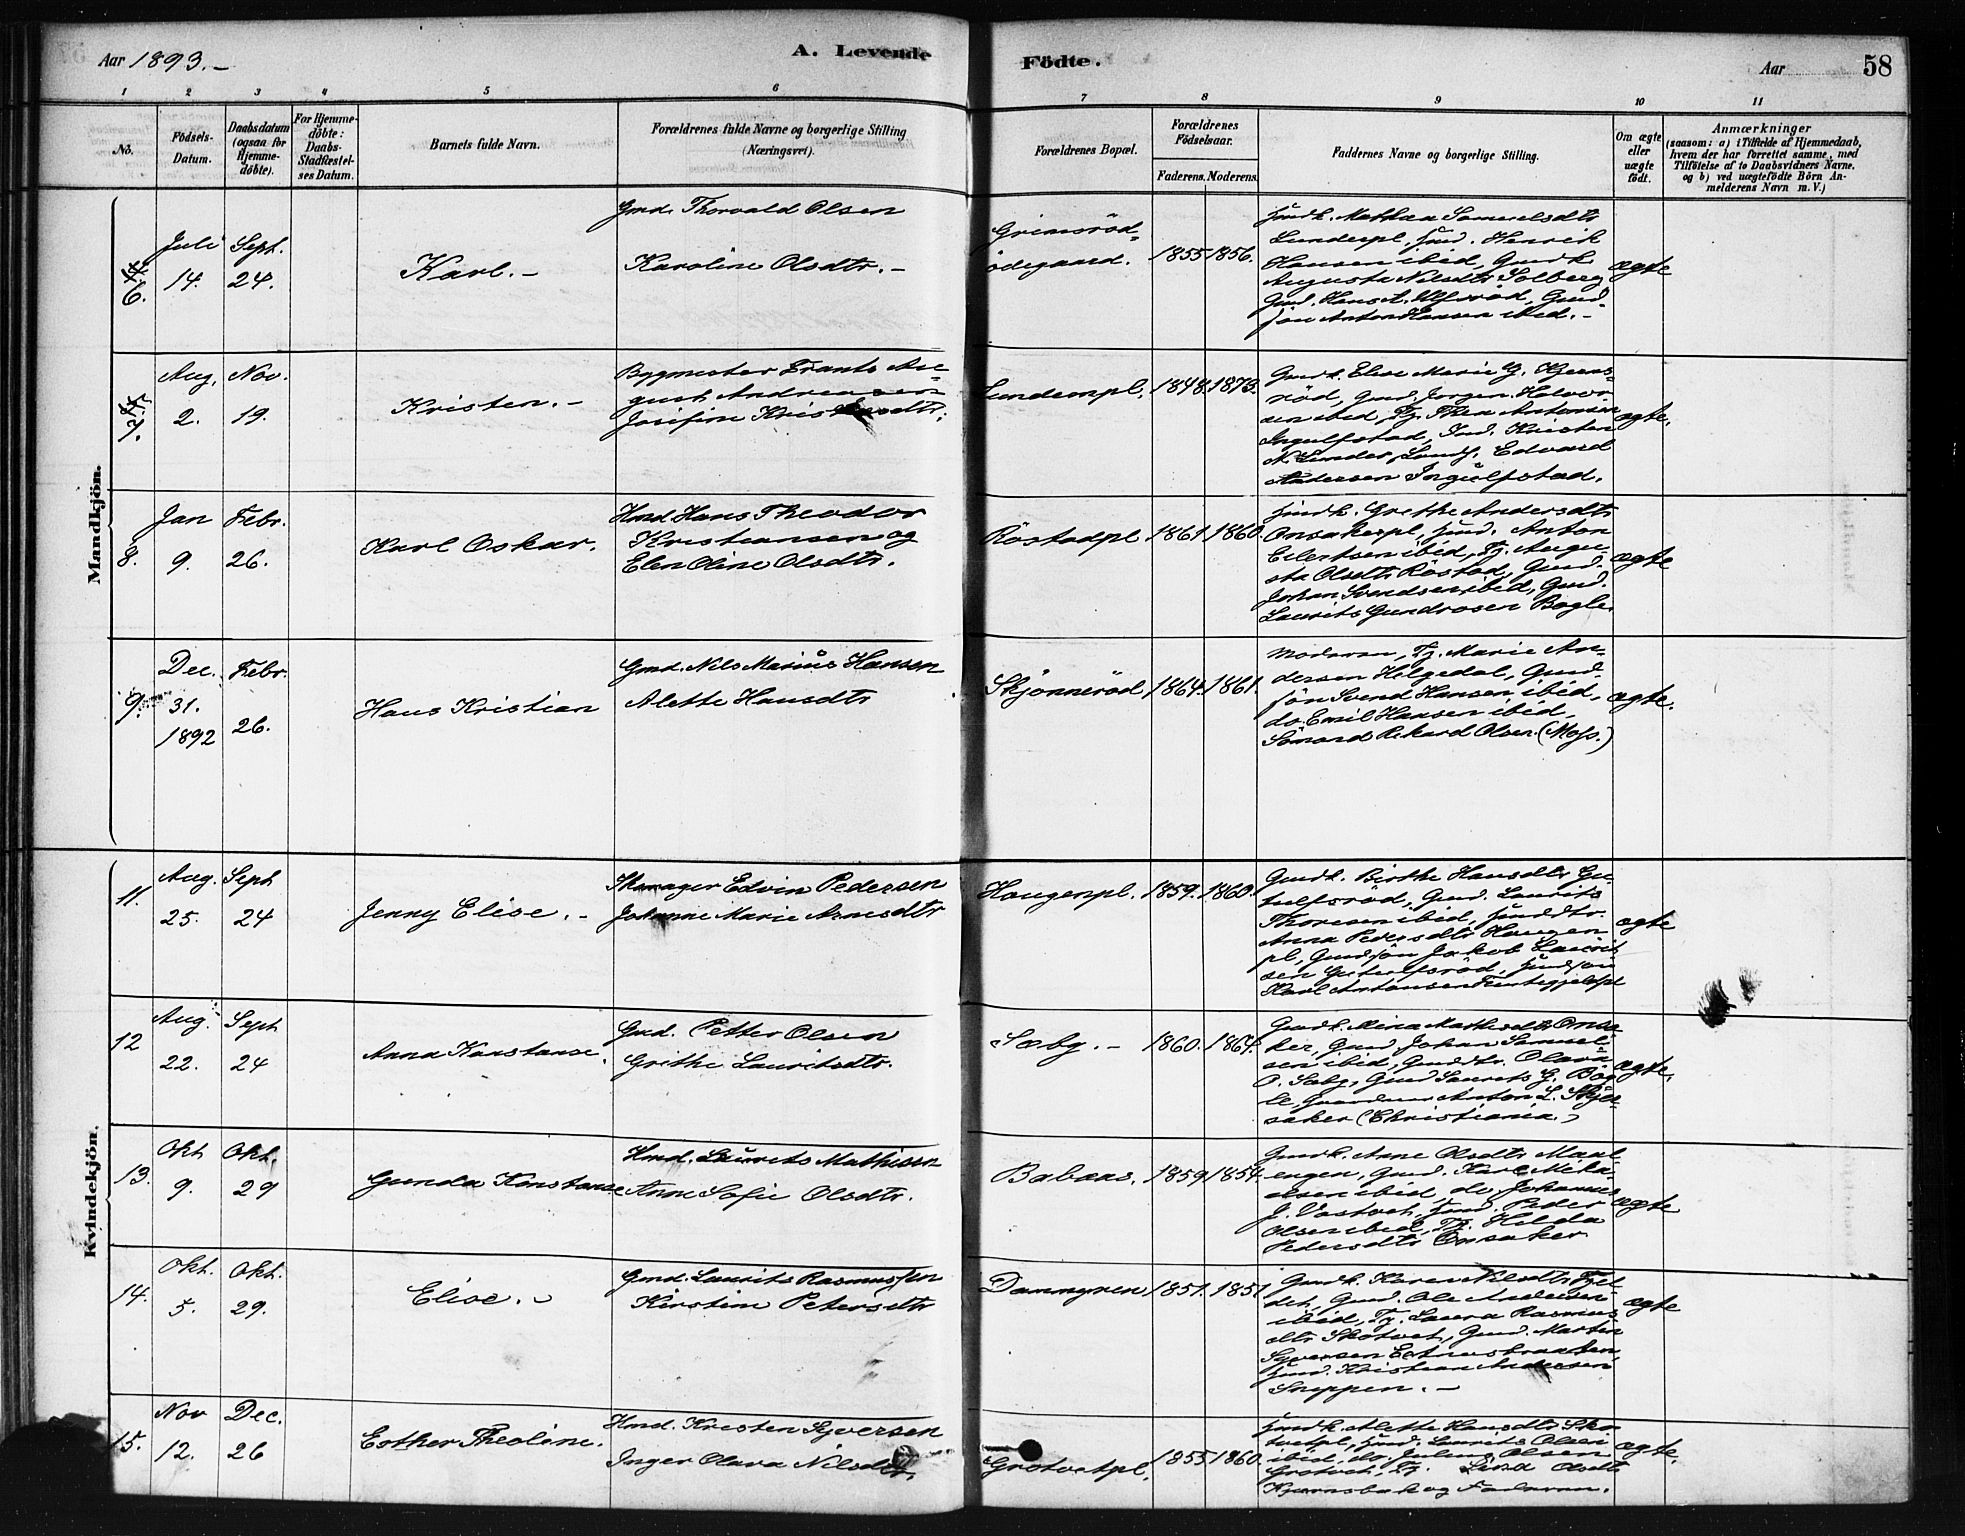 Aar 1893.-
A. Levende Födte.
Aar
58
1 2 3 4 5 6 7 8 9 10 11
No.
Födsels-
Datum.
Daabsdatum
(ogsaa for
Hjemme-
döbte).
For Hjemme-
döbte:
Daabs-
Stadfæstel-
ses Datum.
Barnets fulde Navn.
Forældrenes fulde Navne og borgerlige Stilling
(Næringsvei).
Forældrenes Bopæl.
Forældrenes
Födselsaar.
Faderens. Moderens.
Faddernes Navne og borgerlige Stilling.
Om ægte
eller
uægte
födt.
Anmærkninger
(saasom: a) i Tilfælde af Hjemmedaab,
hvem der har forrettet samme, med
Tilföielse af to Daabsvidners Navne,
og b) ved uægtefödte Börn An-
melderens Navn m. V.)
Mandkjön.
6.
Juli
14.
Sept.
24.
Karl.-
Gmd. Thorvald Olsen
Karoline Olsdtr.-
Grimsröd-
ödegaard.
1855 1856.
Lunderpl, Hmd. Henrik
Hansen ibid, Gmdk.
Augusta Nilsdtr Solberg
Gmd. Hans A. Ulfsröd, Gmd-
sön Anton Hansen ibid.-
ægte
7.
Aug.
2.
Nov.
19.
Kristen.-
Bygmester Frants Au-
gust Andreassen
Josefine
1848. 1873.
Gmdk. Elise Marie
röd, Gmd. Jörgen Halvor-
sen ibid, Tj. Thea Antonsen
Ingulfstad, Ind. Kristen
N. Lunder, Edvard
Andersen Ingulfstad.
ægte.
8.
Jan
9.
Febr.
26.
Karl Oskar.
Hmd Hans Theodor
Kristiansen og
Elen Oline Olsdtr.
Röstadpl
1861. 1860.
Hmdk. Grethe Andersdtr
Onsakerpl, Hmd. Anton
Eilertsen ibid, Tj. Augu-
sta Olsdtr Röstad, Gmd.
Johan Svendsen ibid, Gmd.
Laurits Gundrosen Bögle
ægte
9.
Dec.
31.
1892
Febr.
26.
Hans Kristian
Gmd. Nils Marius Hansen
Alette Hansdtr
Skjönneröd
1864. 1861.
Moderen, Tj. Marie An-
dersen Helgedal, Gmd-
sön Svend Hansen ibid,
do. Emil Hansen ibid,
Sömand Rikard Olsen (Moss.)
ægte.
Kvindekjön.
11.
Aug.
25.
Sept
24
Jenny Elise.-
Skomager Edvin Pedersen
Johanne Marie Arnesdtr
Haugenpl.
1859. 1860.
Gmdk. Birthe Hansdtr Gu-
tulfsröd, Gmd. Laurits
Thoresen ibid, Hmddtr.
Anna Pedersdtr Haugen
pl, Gmdsön Jakob Laurit-
sen Gutulfsröd, Hmdsön
Karl Antonsen
ægte
12
Aug.
22.
Sept
24
Anna Konstanse.
Gmd. Petter Olsen
Grethe Lauritsdtr.
Sæby.-
1860. 1864.
Gmdk. Mina Mathisdtr Onsa-
ker, Gmd Johan Samuel-
sen ibid, Gmddtr. Olava
O. Sæby, Gmd Laurits G. Bög-
le, Anton L. Skjer-
saker (Christiania.)
ægte.
13.
Okt
9.
Okt.
29
Gunda Konstanse
Hmd. Laurits Mathisen
Anne Sofie Olsdtr.
Babaas.
1859 1854
Gmdk. Anne Olsdtr Maal-
engen, Gmd. Karl Mika-
elsen ibid, do Johannes
J. Vastvet, Hmd. Peder
Olsen ibid, Tj. Hilda
Pedersdtr Onsaker
ægte
14.
Okt.
5.
Okt.
29.
Elise.-
Gmd. Laurits Rasmussen
Kirstine Petersdtr
Dammyren
1851. 1851
Gmdk. Karen Nilsdtr Fjel-
det, Gmd. Ole Andersen
ibid, Tj. Laura Rasmus-
dtr Skotvet, Gmd. Martin
Syversen
Hmd. Kristian Andersen
Sneppen.-
ægte
15.
Nov
12.
Dec.
26
Esther Theoline.
Hmd. Kristen Syversen
Inger Olava Nilsdtr.
Grotvetpl.
1855 1860.
Hmdk Alette Hansdtr Sko-
tvetpl, Hmd. Laurits Olsen
ibid, do. Julius Olsen
Grotvet, Tj. Lina Olsdtr
Kjernsbæk og Faderen.
ægte.